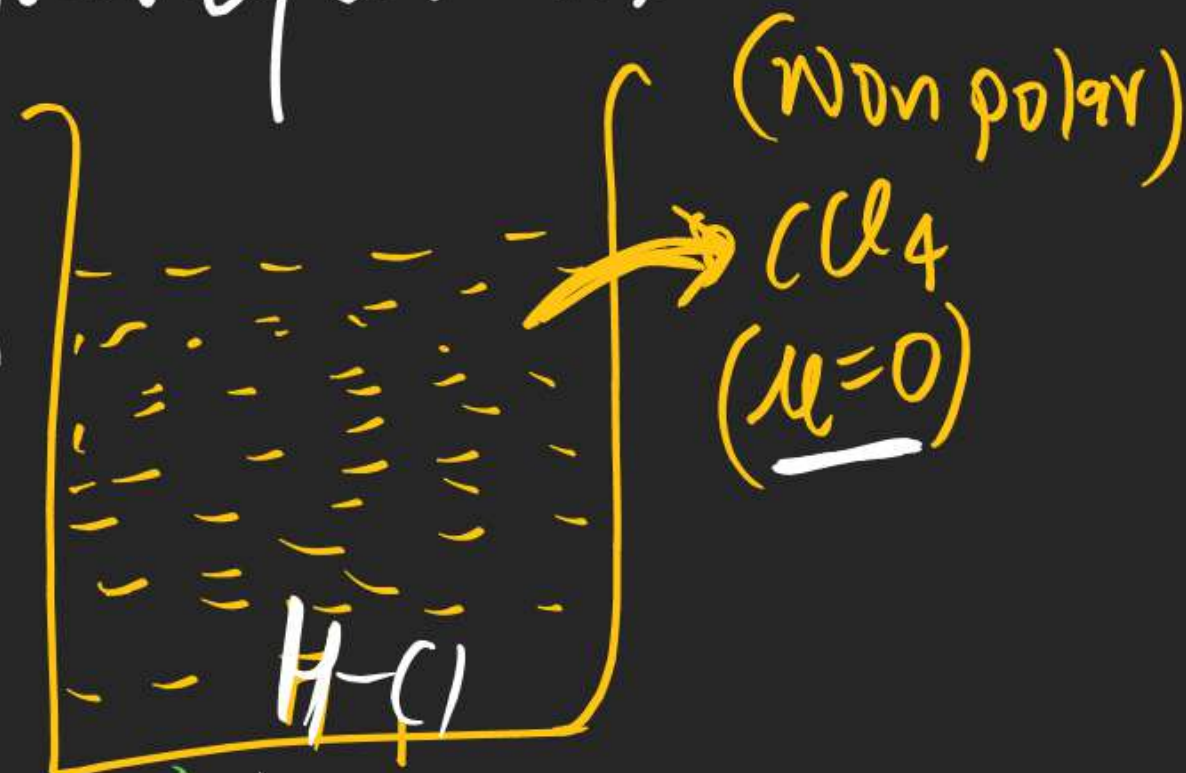 (Non polar)
CCl4
(μ=0)
H-Cl